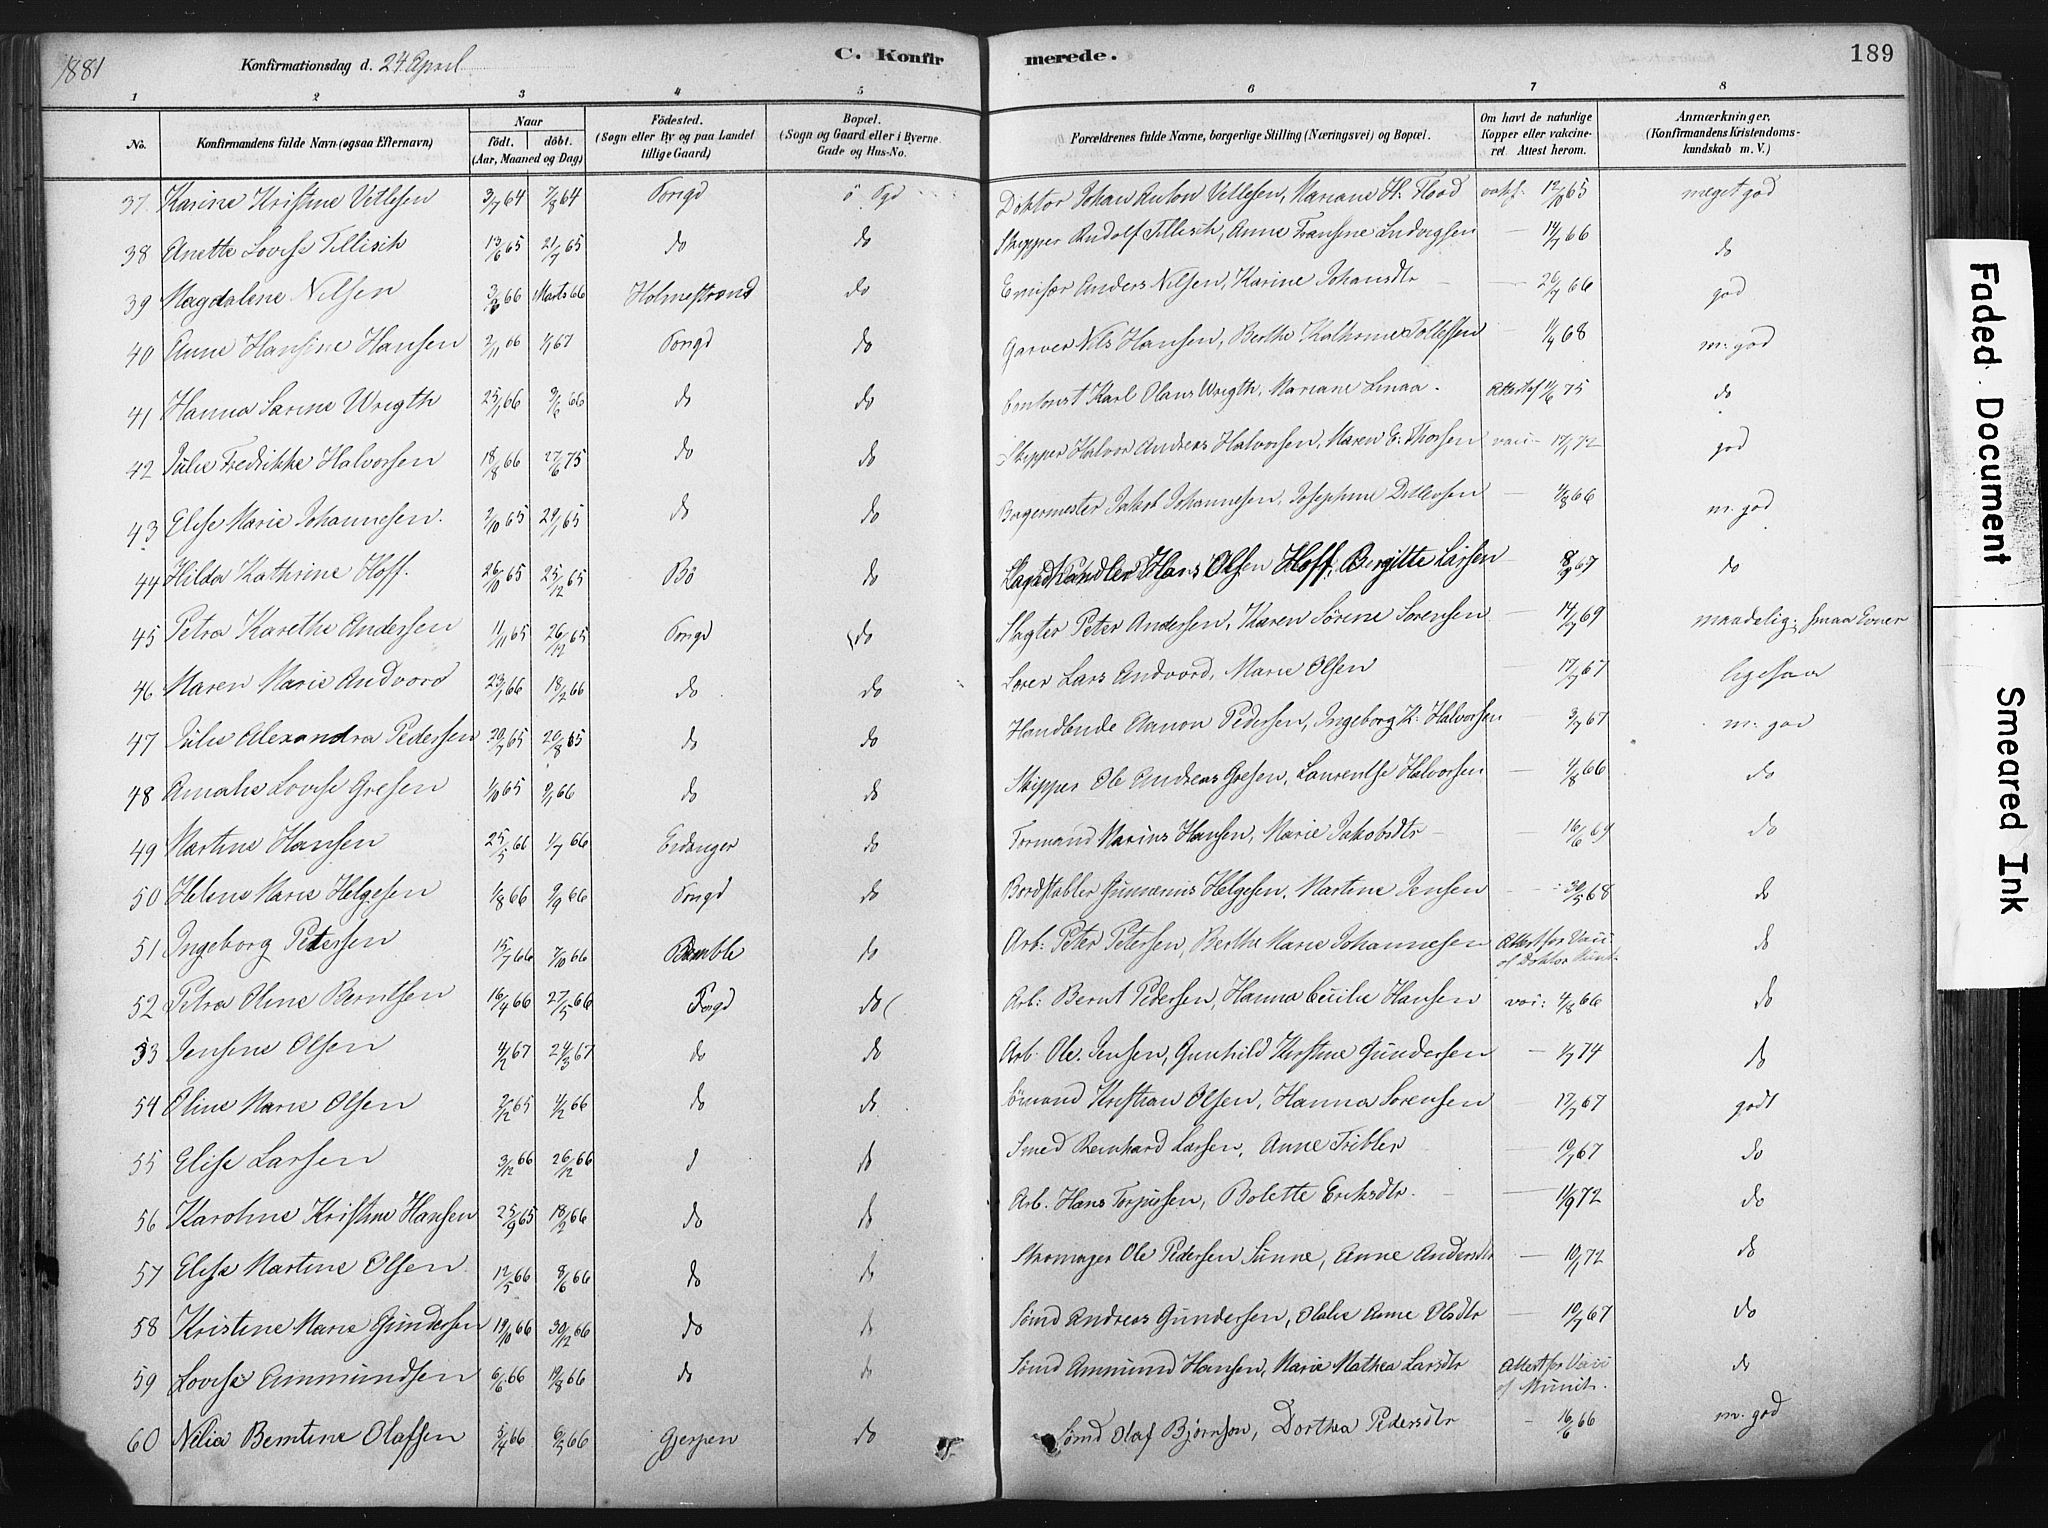 1881
Konfirmationsdag d. 24 April
C. Konfirmerede.
189
1 2 3 4 5 6 7 8
No.
Konfirmandens fulde Navn (ogsaa Efternavn)
Naar
födt. döbt.
(Aar, Maaned og Dag)
Födested.
(Sogn eller By og paa Landet
tillige Gaard)
Bopæl.
(Sogn og Gaard eller i Byerne
Gade og Hus-No.
Forældrenes fulde Navne, borgerlige Stilling (Næringsvei) og Bopæl.
Om havt de naturlige
Kopper eller vakcine-
ret. Attest herom.
Anmærkninger,
(Konfirmandens Kristendoms-
kundskab m. V.)
37 Karine Kristine Vetlesen 3/7 64 7/8 64 Porsgd Doktor Johan Anton Vetlesen, Mariane St. Flood 12/8 65 meget god
38 Anette Lovise Tillisch 13/6 65 21/7 65 do do Skipper Rudolf Tillisch, Anne Fransine Ludvigsen 14/7 66 do
39 Magdalene Nilsen 66 Marts 66 Holmestrand do Emisær Anders Nilsen, Karine Johansdtr - 26/7 66 god
40 Anne Hansine Hansen 2/11 66 1/1 67 Porsgd do Garver Nils Hansen, Berthe Kathrine Tollefsen - 68 m. god
41 Hanna Sarine Wrigth 25/1 66 3/6 66 do do Karl Olaus Wrigth, Mariane Linaa. 11/6 75 do
42 Julie Fredrikke Halvorsen 18/8 66 27/6 75 do do Skipper Halvor Andreas Halvorsen, Maren E. Thorsen 17/1 72 god
43 Elise Marie Johannesen. 2/10 65 29/1 65 do do Borgermester Jakob Johannesen, Josephine Ditlevsen - 4/8 66 m. god
44 Hilda Kathrine Hoff. 26/10 65 25/12 65 Bö do Landhandler Hans Olsen Hoff, Bergitte Larsen - 8/9 67 do
45 Petra Karethe Andersen 11/11 65 26/12 65 Porsgd do Slagter Peter Andersen, Karen Sörine Sorensen - 14/7 69 maadelig, smaa Evner
46 Maren Marie Andvord 23/1 66 18/2 66 do do Lars Andvord, Marie Olsen 17/7 67 ligesaa
47 Julie Alexandra Pedersen 20/7 65 20/8 65 do do Handlende Aanon Pedersen, Ingeborg K. Halvorsen - 3/7 67 m. god
48 Amalie Lovise Gresen 1/10 65 66 do do Skipper Ole Andreas Gresen, Laurentse Halvorsen - 4/8 66 do
49 Martine Hansen 25/5 66 1/7 66 Eidanger do Formand Marius Hansen, Marie Jakobsdtr - 16/6 69 do
50 Helene Marie Helgesen 1/8 66 2/9 66 Porsgd do Bordstabler Gunnerius Helgesen, Martine Jensen - 30/5 68 do
51 Ingeborg Petersen 15/7 66 7/10 66 Bamble do Arb: Peter Petersen, Berthe Marie Johannesen Attest for Vac
af Doktor Munit. do
52 Petra Oline Berntsen 16/4 66 27/5 66 Porsgd do Arb: Bernt Pedersen, Hanna Cecilie Hansen vac: 4/8 66 do
53 Jensine Olsen 4/2 67 24/3 67 do do Arb: Ole Jensen, Gunhild Kirstine Gundersen - 1/7 74 do
54 Oline Marie Olsen 26/12 65 4/2 66 do do Sömand Kristian Olsen, Hanna Sorensen - 17/7 67 godt
55 Elise Larsen 3/12 66 26/12 66 d do Smed Reinhard Larsen, Anne Tribler - 10/7 67 do
56 Karoline Kristine Hansen 25/9 65 18/2 66 do do Arb. Hans Torjusen, Bolette Eriksdtr. - 11/9 72 do
57 Elise Martine Olsen 12/5 66 8/6 66 do do Skomager Ole Pedersen Sunne, Anne Andersdtr - 10/1 72 do
58 Kristine Marie Gundersen 19/10 66 30/12 66 do do Sömd Andreas Gundersen, Olalie Anne Olsdtr - 10/7 67 do
59 Lovise Ammundsen 6/6 66 19/8 66 do do Sömd Ammund Hansen, Marie Mathea Larsdtr Attest for Vac
af Munit. do
60 Nilia Berntine Olafsen 5/4 66 6/5 66 Gjerpen do Sömd Olaf Björnson, Dorthea Pedersdtr - 16/6 66 m. god
Faded Document
Smeared Ink